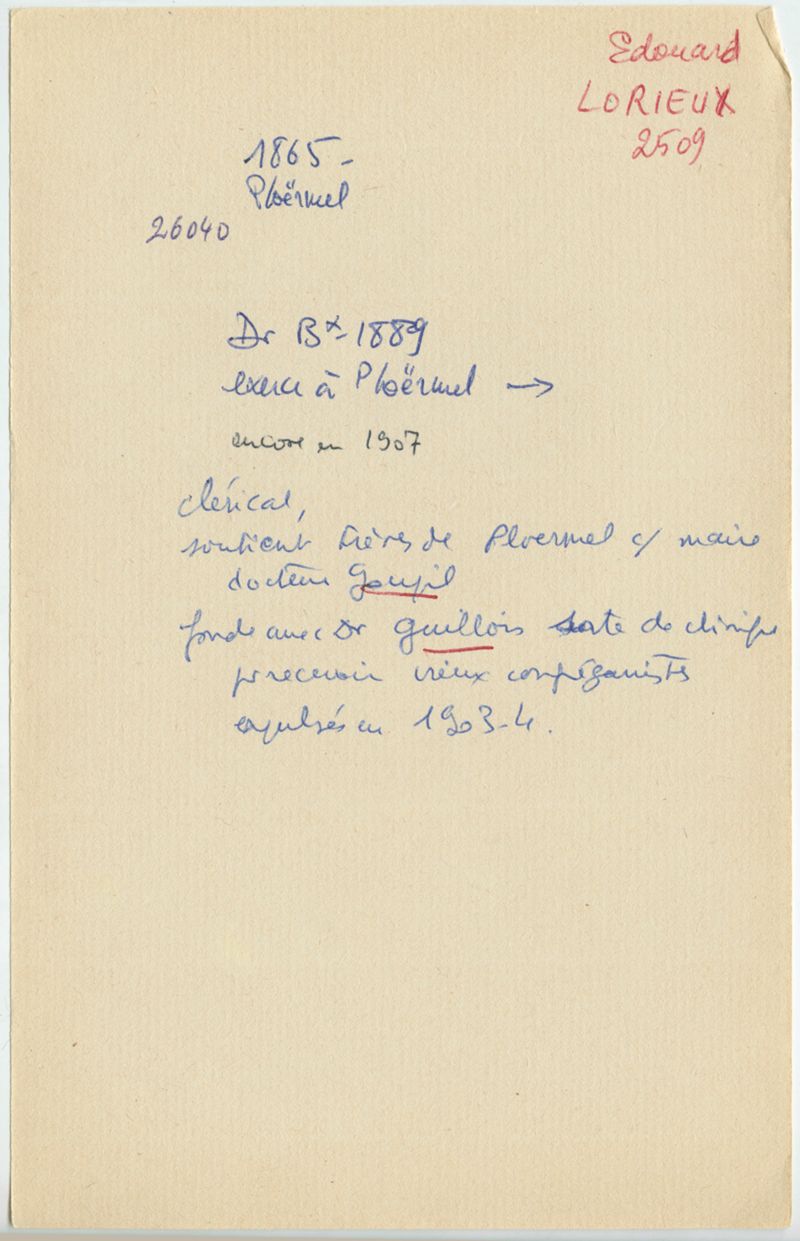 Edouard
LORIEUX
2509
1865 -
Ploërmel
26040
Dr Bx - 1889
exerce à Ploërmel →
encore en 1907
clérical,
soutient Frères de Ploermel c/ maire
docteur Goupil
fonde avec Dr Guillois sorte de clinique
pr recevoir vieux congréganistes
expulsés en 1903-4.